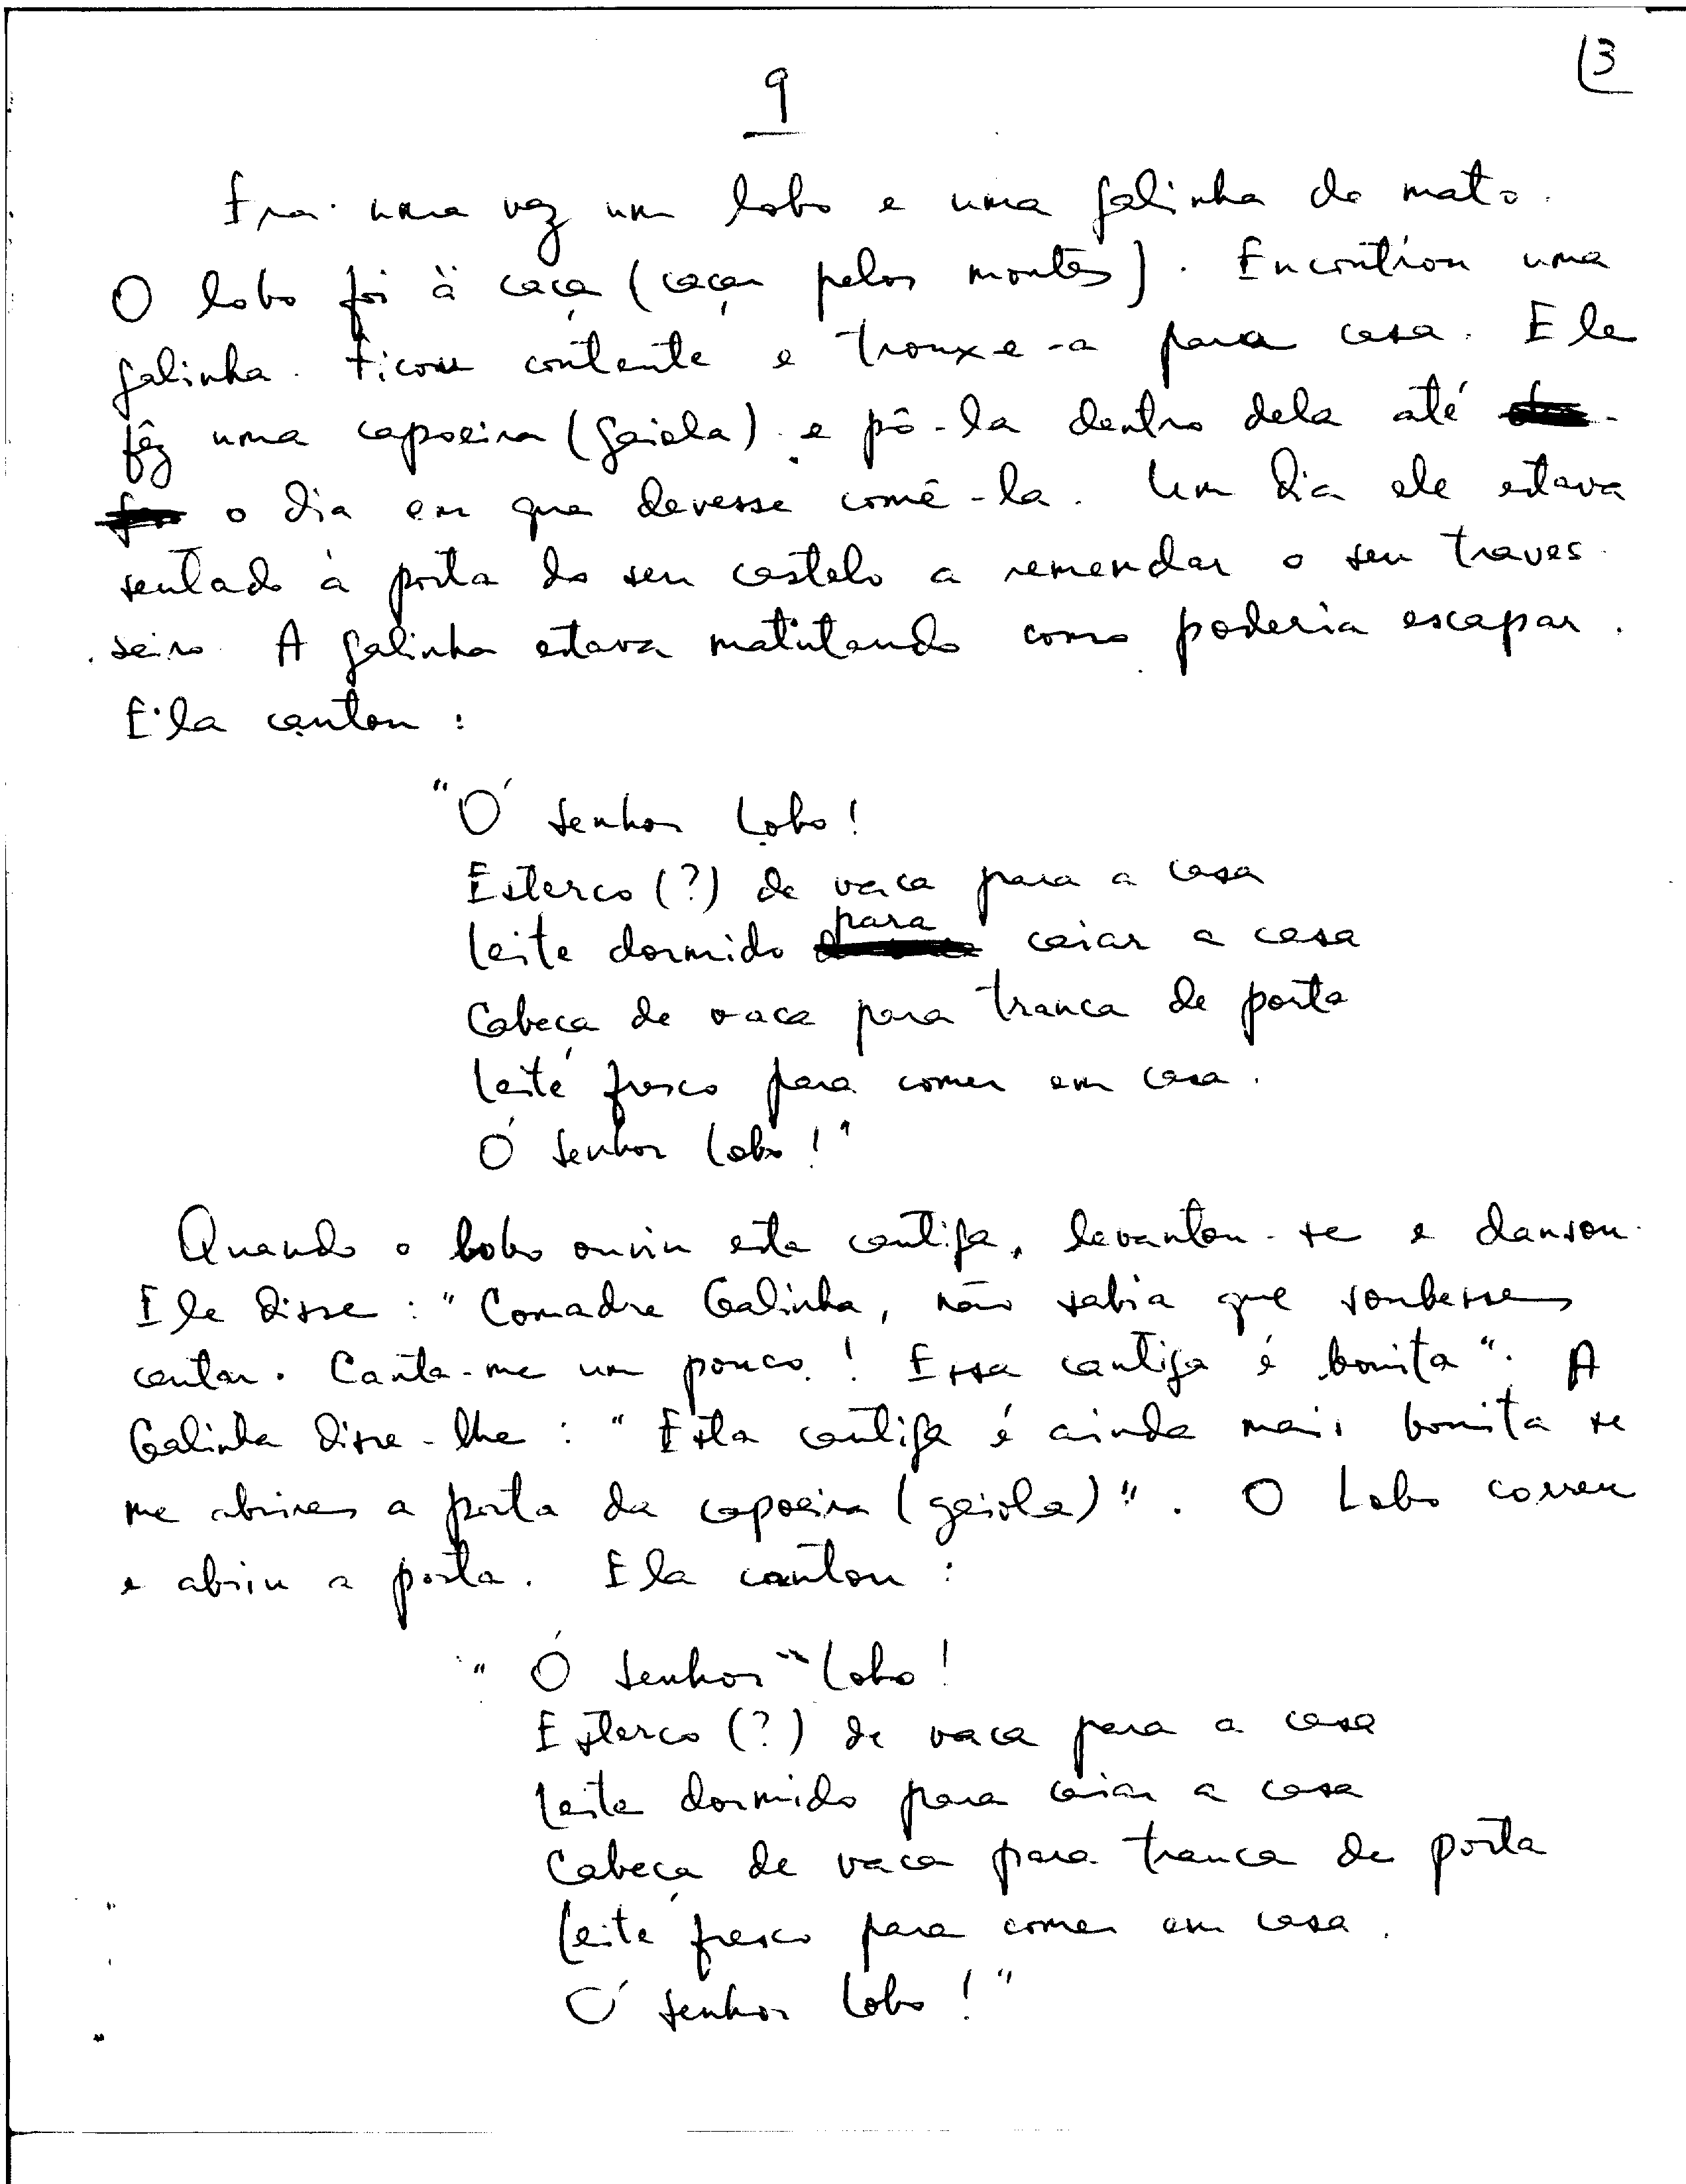 13
9
Era uma vez um lobo e uma galinha do mato.
O lobo foi à caça (caçar pelos montes). Encontrou uma
galinha. Ficou contente e trouxe-a para casa. Ele
fêz uma capoeira (gaiola) e pô-la dentro dela até
o dia em que devesse comê-la. Um dia ele estava
sentado à porta do seu castelo a remendar o seu traves-
seiro. A galinha estava matutando como poderia escapar.
Ela cantou:
"Ó senhor Lobo!
Esterco (?) de vaca para a casa
Leite dormido para caiar a casa
Cabeça de vaca para tranca de porta
Leite fresco para comer em casa.
Ó senhor Lobo!"
Quando o lobo ouviu esta cantiga, levantou-se e dansou.
Ele disse: "Comadre Galinha, não sabia que soubesses
cantar. Canta-me um pouco! Essa cantiga é bonita". A
Galinha disse-lhe: "Esta cantiga é ainda mais bonita se
me abrires a porta da capoeira (gaiola)". O Lobo correu
e abriu a porta. Ela cantou:
"Ó senhor Lobo!
Esterco (?) de vaca para a casa
Leite dormido para caiar a casa
Cabeça de vaca para tranca de porta
Leite fresco para comer em casa.
Ó senhor Lobo!"